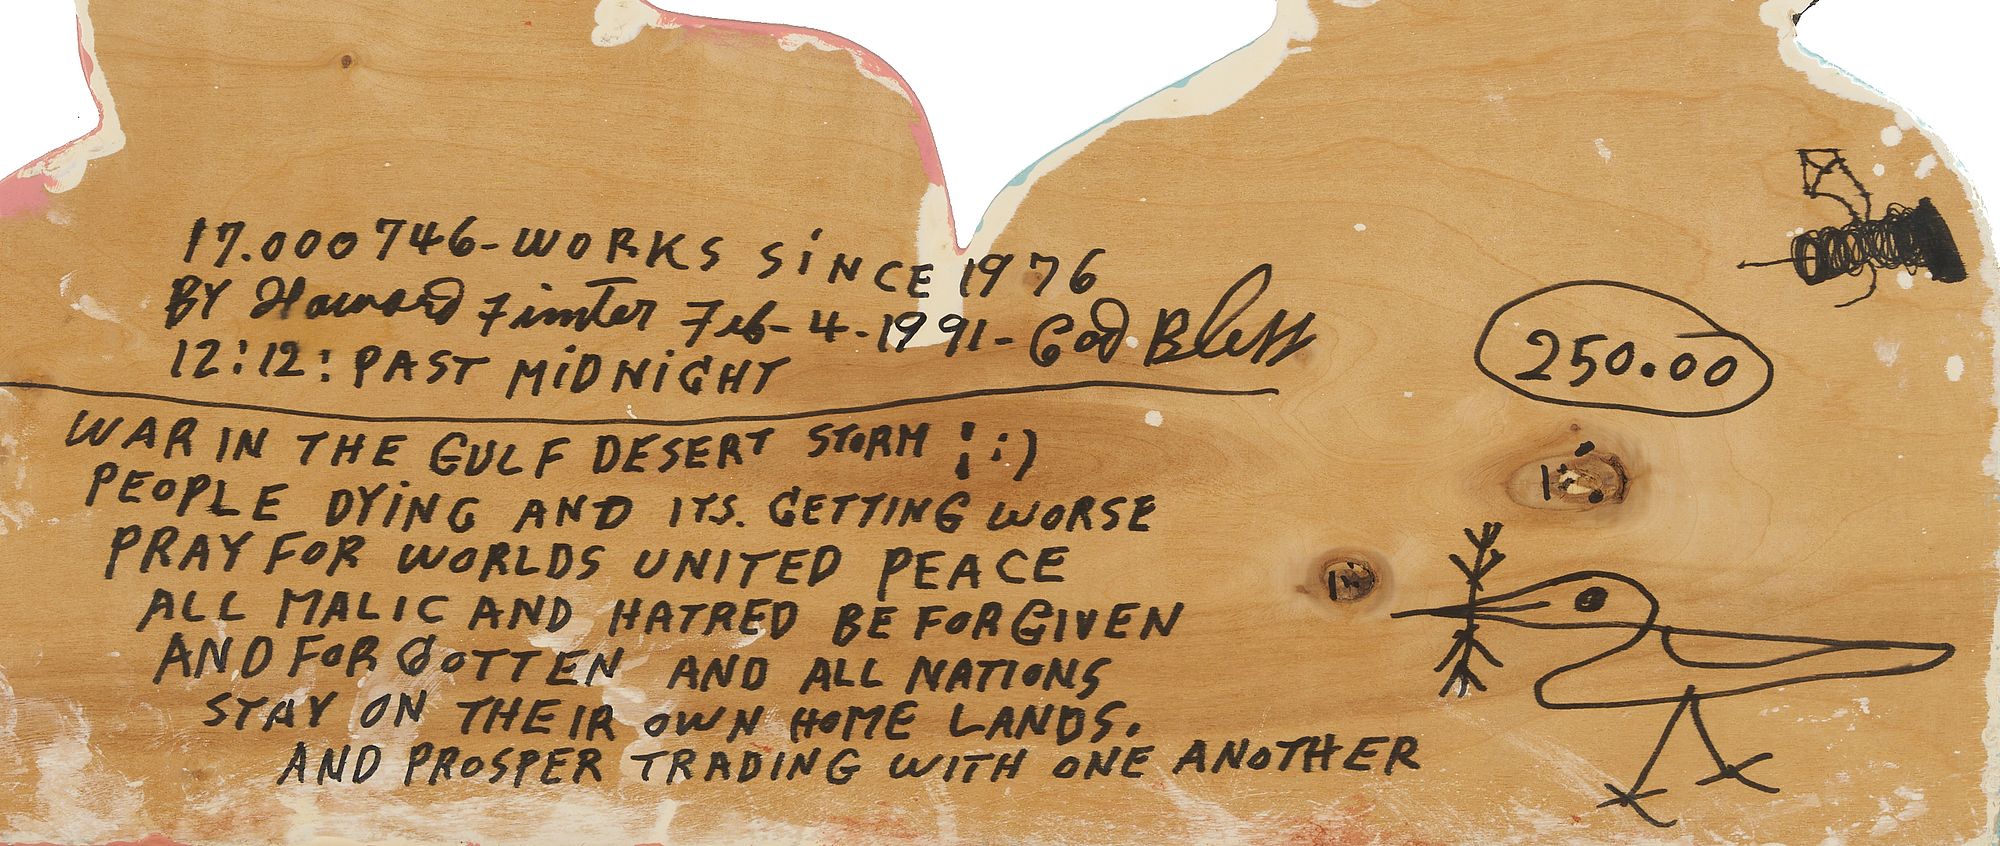 17.000746-WORKS SINCE 1976
BY Howard Finster Feb-4-1991- God Bless
12:12: PAST MIDNIGHT
WAR IN THE GULF DESERT STORM ! :)
PEOPLE DYING AND ITS. GETTING WORSE
PRAY FOR WORLDS UNITED PEACE
ALL MALIC AND HATRED BE FORGIVEN
AND FORGOTTEN AND ALL NATIONS
STAY ON THEIR OWN HOME LANDS.
AND PROSPER TRADING WITH ONE ANOTHER
250.00